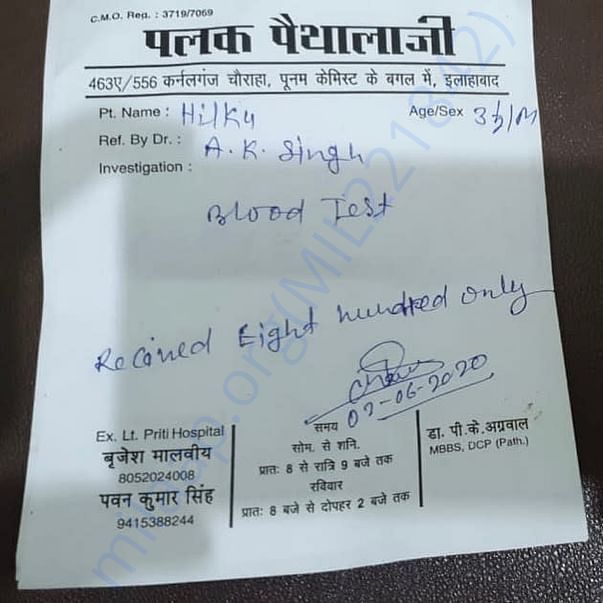 C.M.O. Reg. : 3719/7069
पलक पैथालाजी
463ए/556 कर्नलगंज चौराहा, पूनम केमिस्ट के बगल में, इलाहाबाद
Pt. Name : Hilku Age/Sex 3½/M
Ref. By Dr. : A. K. Singh
Investigation :
Blood Test
Recived Eight hundred only
02-06-2020
Ex. Lt. Priti Hospital
बृजेश मालवीय
8052024008
पवन कुमार सिंह
9415388244
समय
सोम. से शनि.
प्रातः 8 से रात्रि 9 बजे तक
रविवार
प्रातः 8 बजे से दोपहर 2 बजे तक
डा. पी.के.अग्रवाल
MBBS, DCP (Path.)
milaap.org(MIL2221842)